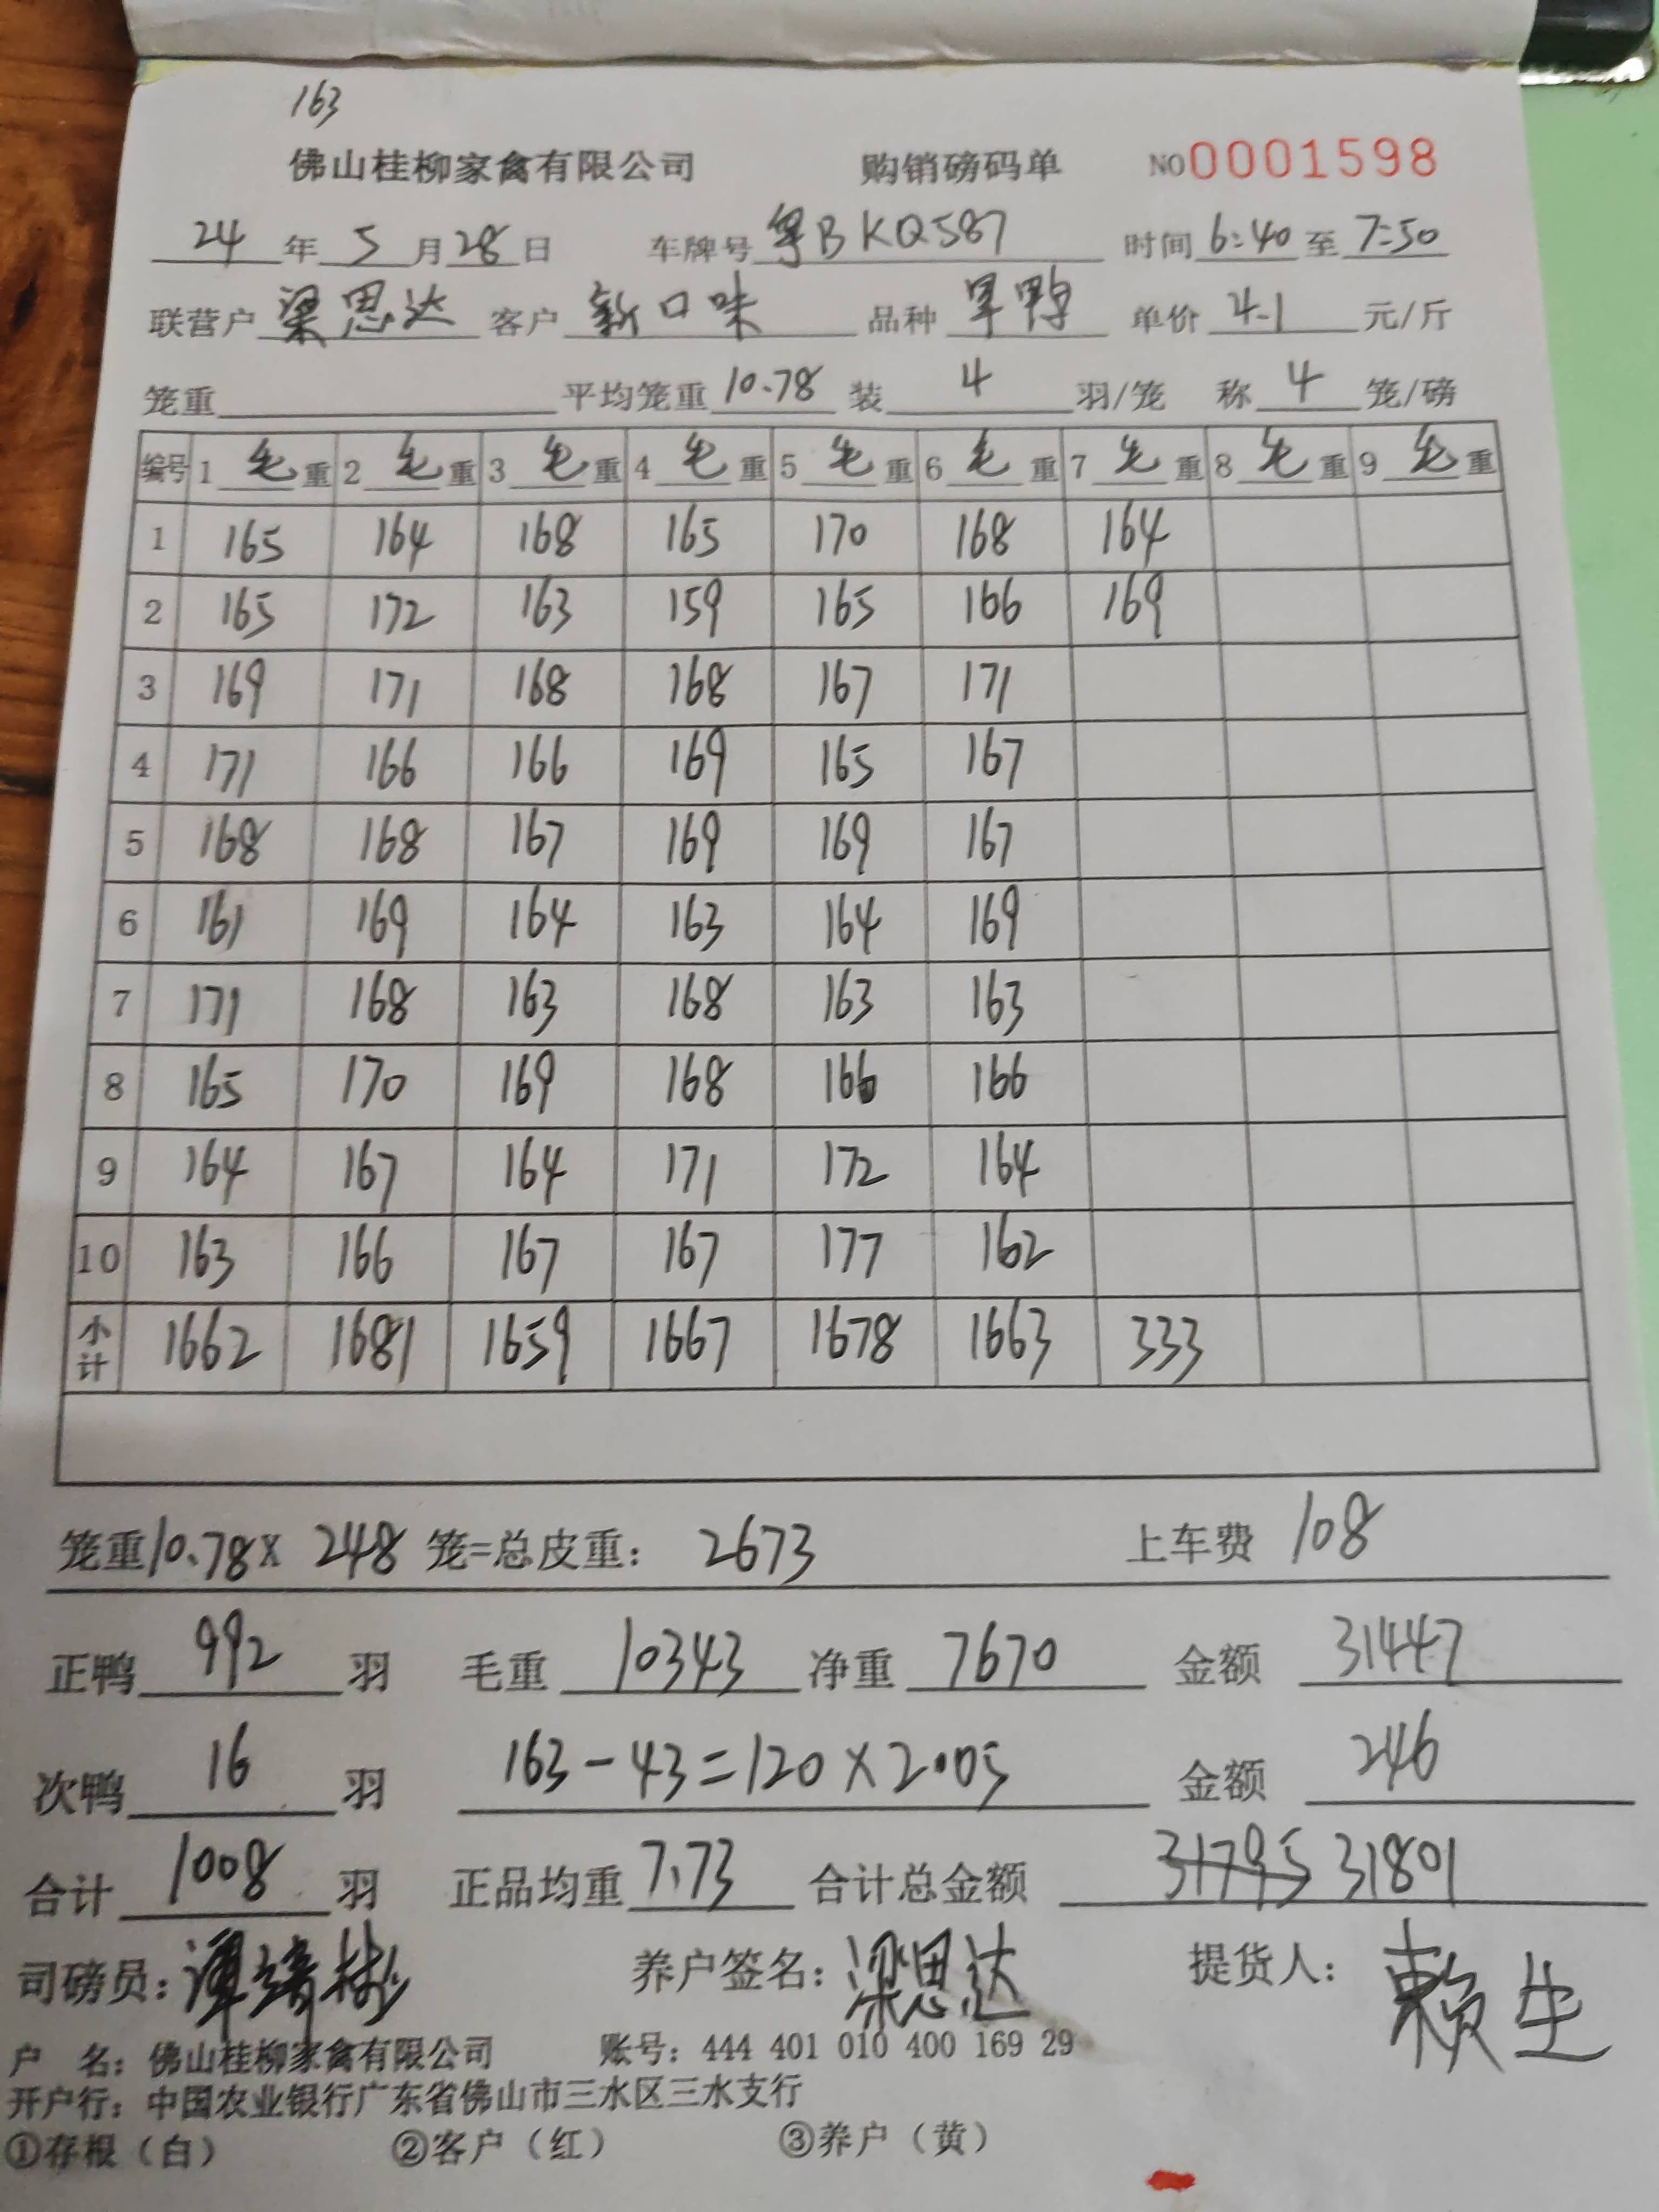 163
佛山桂柳家禽有限公司 购销磅码单 NO 0001598
24 年 5 月 28 日 车牌号 粤BKQ587 时间 6:40 至 7:50
联营户 梁思达 客户 新口味 品种 旱鸭 单价 4.1 元/斤
笼重 平均笼重 10.78 装 4 羽/笼 称 4 笼/磅
编号 1 毛 重 2 毛 重 3 毛 重 4 毛 重 5 毛 重 6 毛 重 7 毛 重 8 毛 重 9 毛 重
1 165 164 168 165 170 168 164
2 165 172 163 159 165 166 169
3 169 171 168 168 167 171
4 171 166 166 169 165 167
5 168 168 167 169 169 167
6 161 169 164 163 164 169
7 171 168 163 168 163 163
8 165 170 169 168 166 166
9 164 167 164 171 172 164
10 163 166 167 167 177 162
小计 1662 1681 1659 1667 1678 1663 333
笼重 10.78 X 248 笼=总皮重: 2673 上车费 108
正鸭 992 羽 毛重 10343 净重 7670 金额 31447
次鸭 16 羽 163-43=120×2.05 金额 246
合计 1008 羽 正品均重 7.73 合计总金额 31795 31801
司磅员: 养户签名: 梁思达 提货人: 赖生
户 名: 佛山桂柳家禽有限公司 账号: 444 401 010 400 169 29
开户行: 中国农业银行广东省佛山市三水区三水支行
①存根（白） ②客户（红） ③养户（黄）